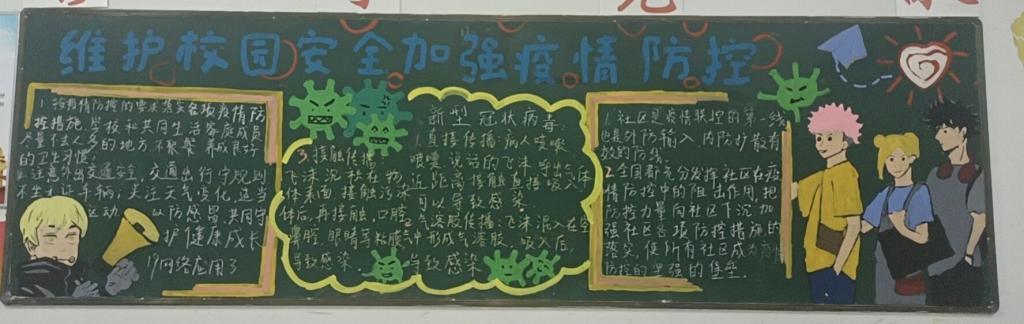 维护校园安全加强疫情防控
控措施,学校和共同生活家庭成员
尽量任人多的地方不聚餐 养成良好
的卫生习惯。
注意外出交通安全,交通出行守规则
不坐
车辆,关注天气变化,适当
运动
以防感冒,共同守
护健康成长
17网络应用3
新型冠状病毒
1.直接传播:病人喷嚏、
咳嗽、说话的飞沫,呼出气体
近距离接触直接吸入
可以导致感染。
2.气溶胶传播:飞沫混入在空
气中,形成气溶胶,吸入后
导致感染
3.接触传播:
飞沫沉积在物
体表面,接触污染
手后,再接触,口腔
鼻腔,眼睛等粘膜
导致感染。
1.社区是疫情联控的第一线
也是外防输入、内防扩散有
效的防线。
2.全国都充分发挥社区在疫
情防控中的阻击作用,把
防控力量向社区下沉,加
强社区各项防控措施的
落实,使所有社区成为疫情
防控的坚强的堡垒。